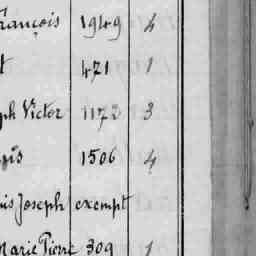 François 1949 4
t 421 1
ph Victor 1173 3
çois 1506 4
uis Joseph exempt
Marie Pierre 309 1